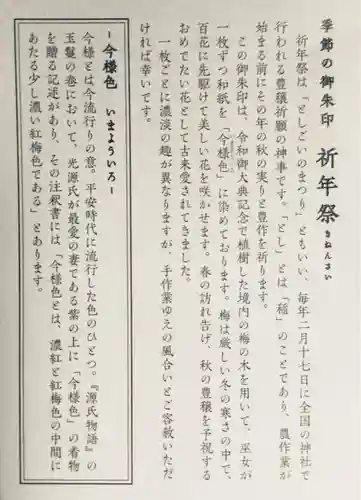 季節の御朱印 祈年祭 きねんさい
祈年祭は、「としごいのまつり」ともいい、毎年二月十七日に全国の神社で
行われる豊穣祈願の神事です。「とし」とは「稲」のことであり、農作業が
始まる前にその年の秋の実りと豊作を祈ります。
この御朱印は、令和御大典記念で植樹した境内の梅の木を用いて、巫女が
一枚ずつ和紙を「今様色」に染めております。梅は厳しい冬の寒さの中で、
百花に先駆けて美しい花を咲かせます。春の訪れ告げ、秋の豊穣を予祝する
おめでたい花として古来愛されてきました。
一枚ごとに濃淡の趣が異なりますが、手作業ゆえの風合いとご容赦いただ
ければ幸いです。
−今様色 いまよういろ−
今様とは今流行りの意。平安時代に流行した色のひとつ。『源氏物語』の
玉鬘の巻において、光源氏が最愛の妻である紫の上に「今様色」の着物
を贈る記述があり、その注釈書には「今様色とは、濃紅と紅梅色の中間に
あたる少し濃い紅梅色である」とあります。